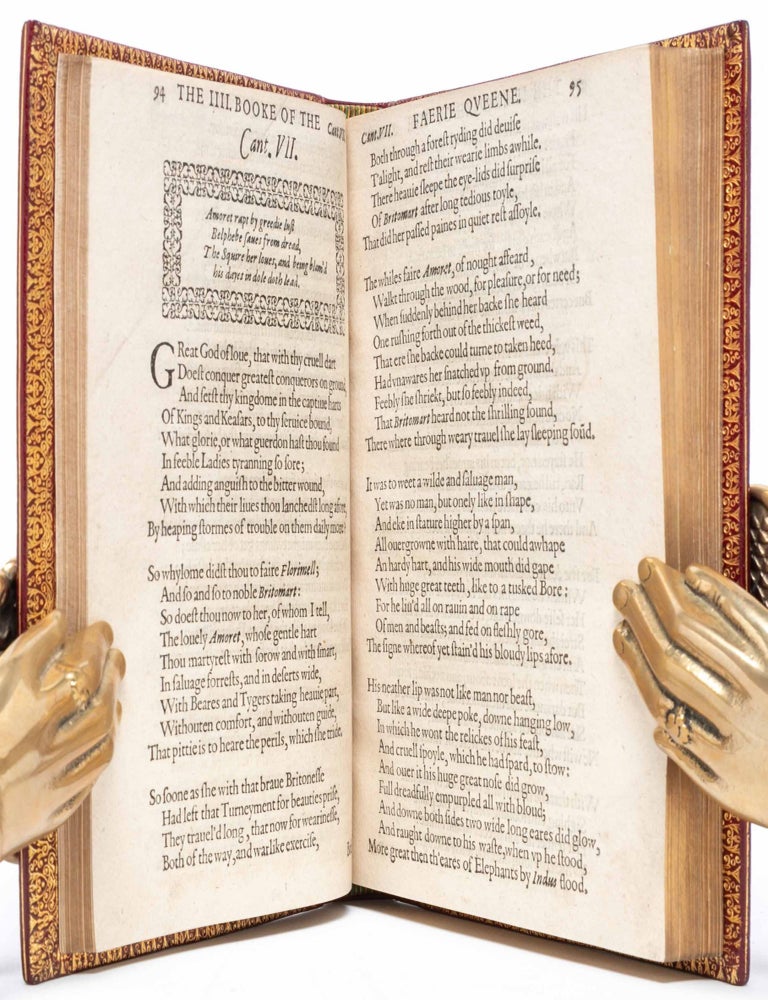 94 THE IIII. BOOKE OF THE
Cant. VII.
Amoret rapt by greedie lust
Belphebe saues from dread,
The Squire her loues, and being blam'd
his dayes in dole doth lead.
GReat God of loue, that with thy cruell dart
Doest conquer greatest conquerors on ground,
And setst thy kingdome in the captiue harts
Of Kings and Keasars, to thy seruice bound,
What glorie, or what guerdon hast thou found
In feeble Ladies tyranning so sore;
And adding anguish to the bitter wound,
With which their liues thou lanchedst long afore,
By heaping stormes of trouble on them daily more?
So whylome didst thou to faire Florimell;
And so and so to noble Britomart:
So doest thou now to her, of whom I tell,
The louely Amoret, whose gentle hart
Thou martyrest with sorow and with smart,
In saluage forrests, and in deserts wide,
With Beares and Tygers taking heauie part,
Withouten comfort, and withouten guide,
That pittie is to heare the perils, which she tride.
So soone as she with that braue Britonesse
Had left that Turneyment for beauties prise,
They trauel'd long, that now for wearinesse,
Both of the way, and warlike exercise,
Cant. VII. FAERIE QVEENE. 95
Both through a forest ryding did deuise
T'alight, and rest their wearie limbs awhile.
There heauie sleepe the eye-lids did surprise
Of Britomart after long tedious toyle,
That did her passed paines in quiet rest assoyle.
The whiles faire Amoret, of nought affeard,
Walkt through the wood, for pleasure, or for need;
When suddenly behind her backe she heard
One rushing forth out of the thickest weed,
That ere she backe could turne to taken heed,
Had vnawares her snatched vp from ground.
Feebly she shriekt, but so feebly indeed,
That Britomart heard not the shrilling sound,
There where through weary trauel she lay sleeping soũd.
It was to weet a wilde and saluage man,
Yet was no man, but onely like in shape,
And eke in stature higher by a span,
All ouergrowne with haire, that could awhape
An hardy hart, and his wide mouth did gape
With huge great teeth, like to a tusked Bore:
For he liu'd all on rauin and on rape
Of men and beasts; and fed on fleshly gore,
The signe whereof yet stain'd his bloudy lips afore.
His neather lip was not like man nor beast,
But like a wide deepe poke, downe hanging low,
In which he wont the relickes of his feast,
And cruell spoyle, which he had spard, to stow:
And ouer it his huge great nose did grow,
Full dreadfully empurpled all with bloud;
And downe both sides two wide long eares did glow,
And raught downe to his waste, when vp he stood,
More great then th'eares of Elephants by Indus flood.